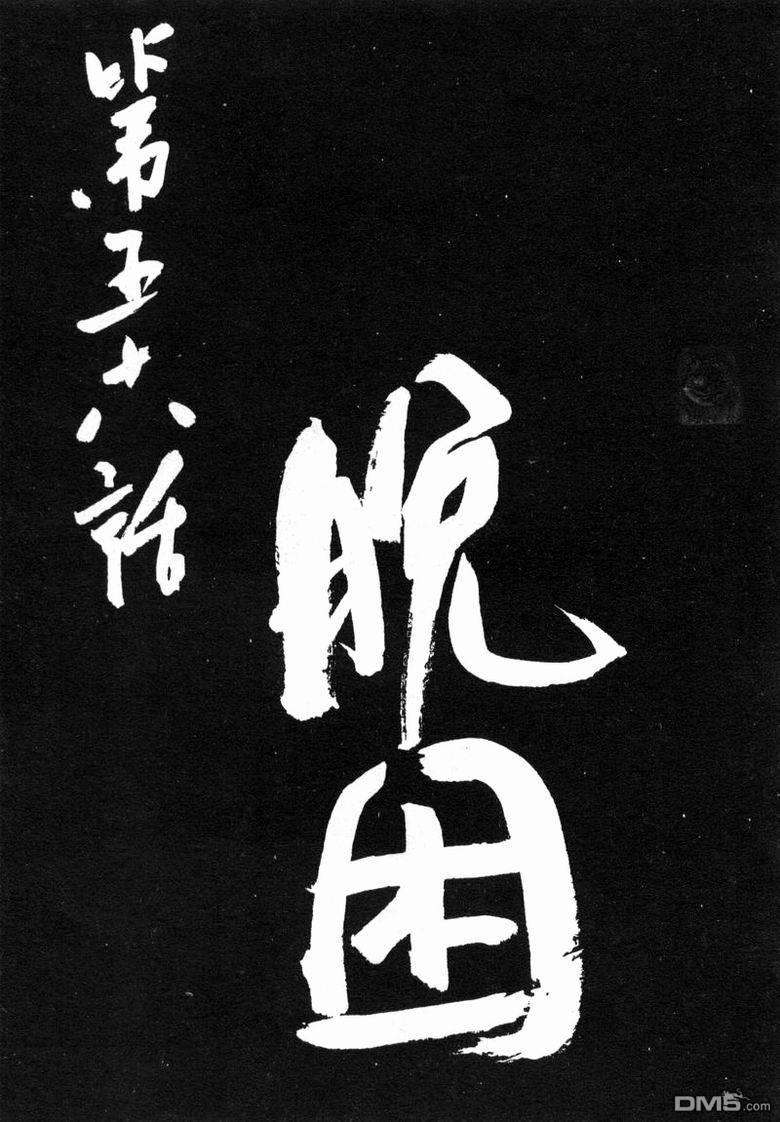 第五十八話
脫困
DM5.com